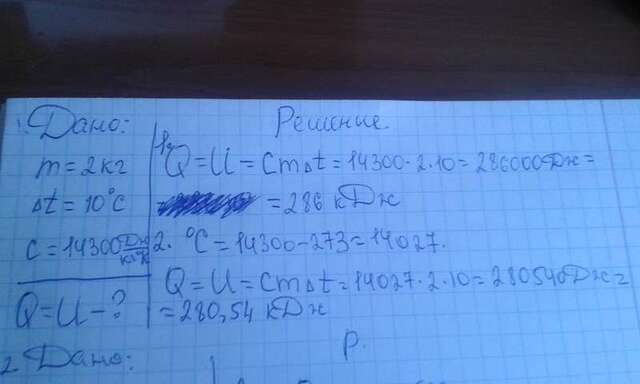 1. Дано:
m = 2кг
Δt = 10°C
c = 14300 Дж/кг°К
Q = U - ?
Решение.
1. Q = U = cmΔt = 14300·2·10 = 286000Дж =
= 286 кДж
2. °C = 14300-273 = 14027.
Q = U = cmΔt = 14027·2·10 = 280540Дж =
= 280,54 кДж
2. Дано:
Р.